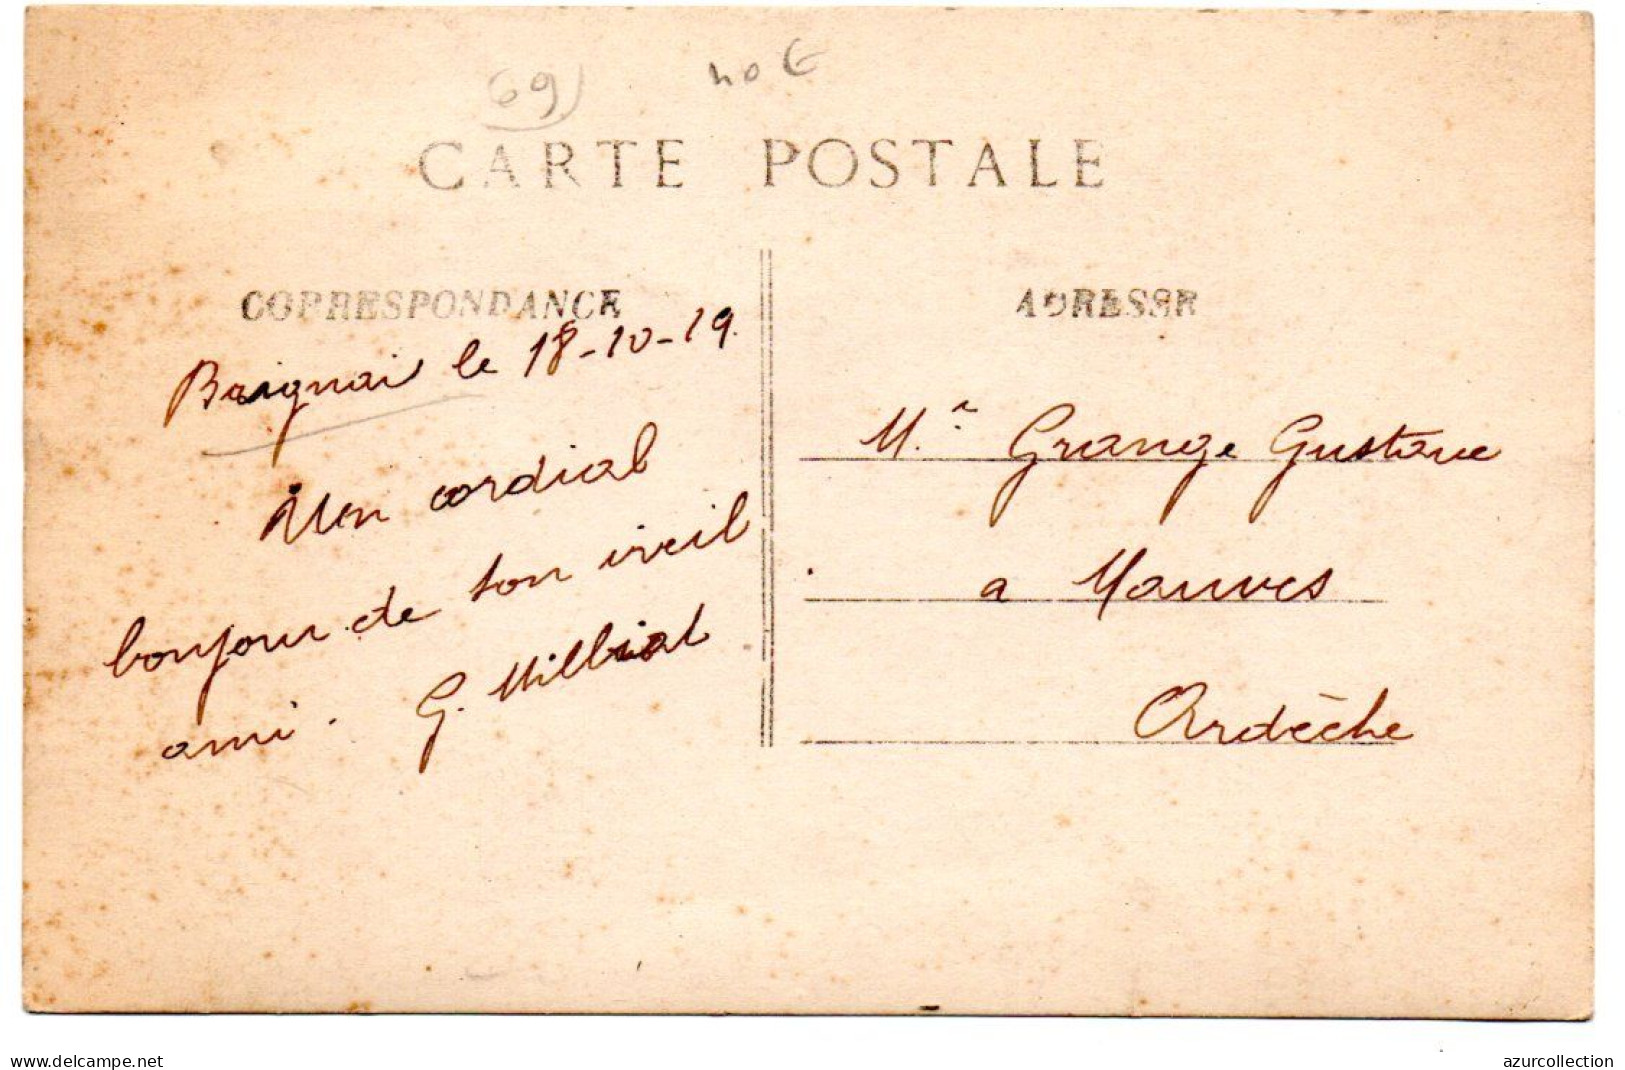 69
40 €
CARTE POSTALE
CORRESPONDANCE
Brignai le 18-10-19.
Mon cordial
bonjour de ton vieil
ami. G. Millriat
ADRESSE
M.r Grange Gustave
a Mauves
Ardèche
www.delcampe.net
azurcollection